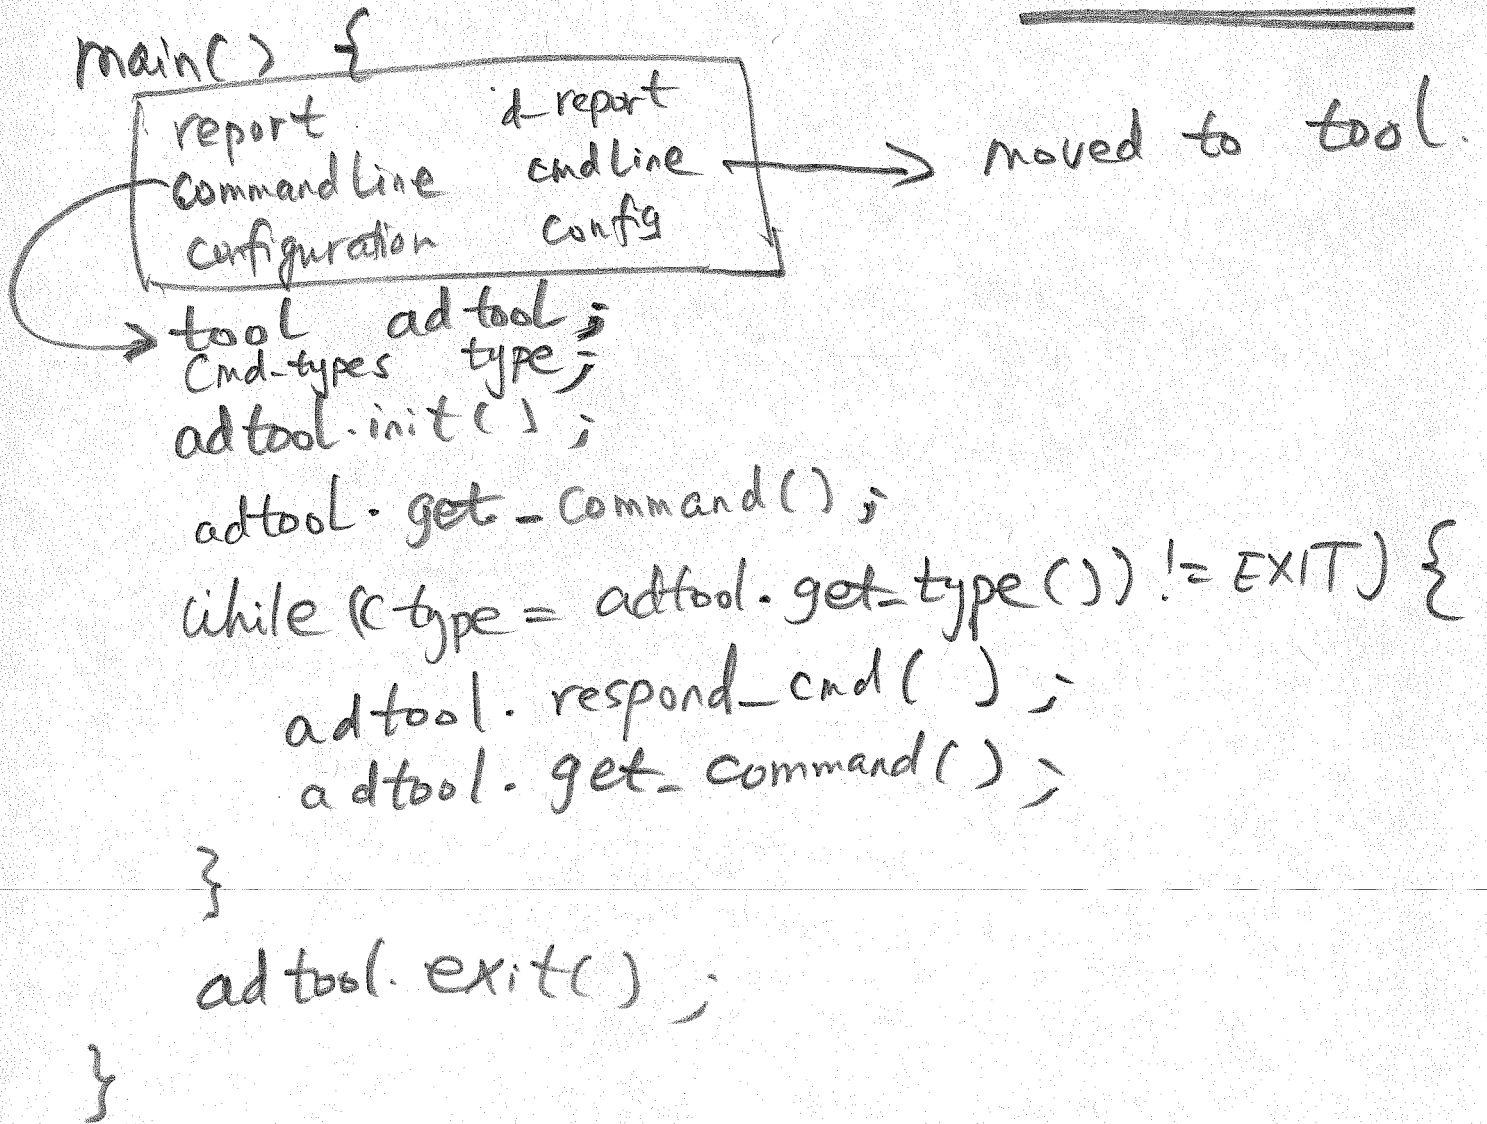 main() {
report d_report
commandLine cmdLine
moved to tool.
configuration config
tool adtool;
Cmd-types type;
adtool.init();
adtool.get_command();
while ((type = adtool.get_type()) != EXIT) {
adtool.respond_cmd( );
adtool.get_command();
}
adtool.exit();
}